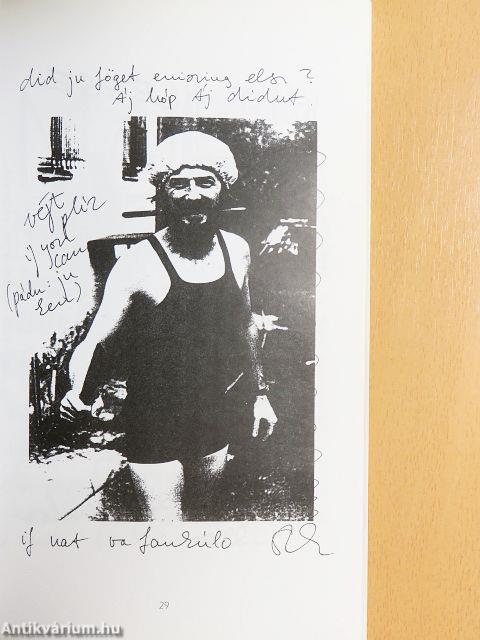 did ju fóget enising els ?
Áj hóp Áj didnt.
véjt
plíz
if you
can
(pádn: ju
ken)
if nat va fankúlo
29
Antikvárium.hu